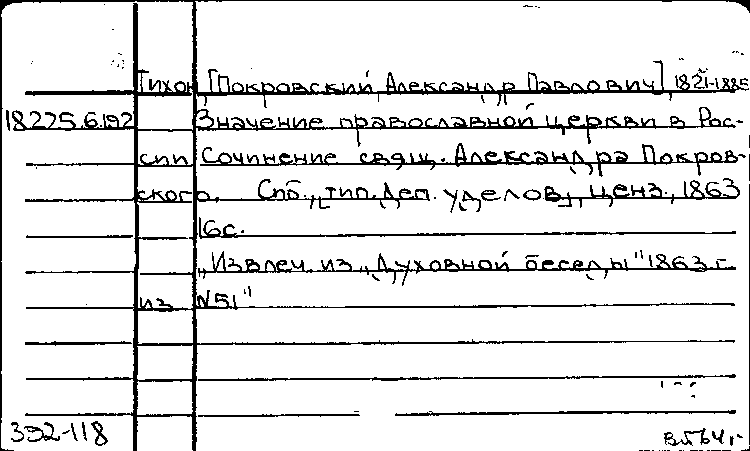 Тихон [Покровский, Александр Павлович], 1821-1885
18275.6.192 Значение православной церкви в Рос-
сии Сочинение свящ. Александра Покров-
ского. Спб., [тип. Деп. уделов], ценз., 1863
16с.
„Извлеч. из „Духовной беседы" 1863 г.
из N51"
392-118